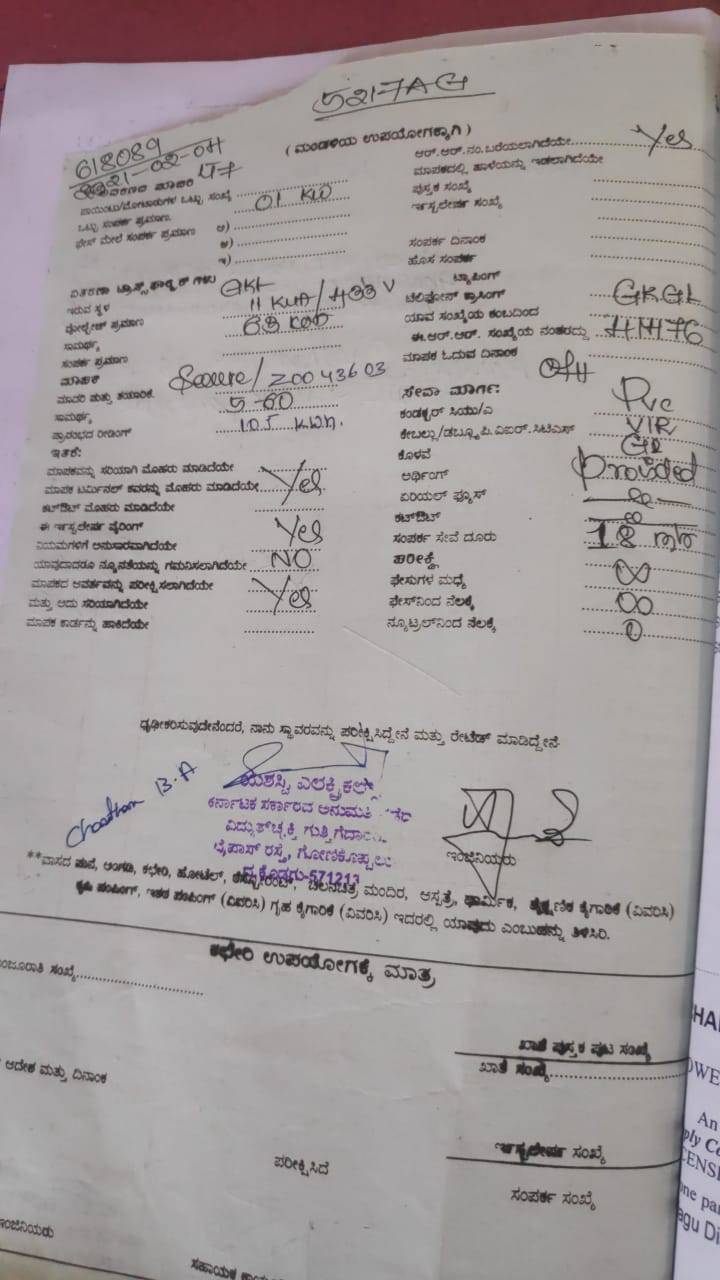 5217AG
( ಮಂಡಳಿಯ ಉಪಯೋಗಕ್ಕಾಗಿ )
618089
LT7
ಪಾಯಿಂಟು/ಮೋಟಾರುಗಳ ಒಟ್ಟು ಸಂಖ್ಯೆ
ಒಟ್ಟು ಸಂಪರ್ಕ ಪ್ರಮಾಣ. 01 KW
ಫೇಸ್ ಮೇಲೆ ಸಂಪರ್ಕ ಪ್ರಮಾಣ ಅ)
ಆ)
ಇ)
ವಿತರಣಾ ಟ್ರಾನ್ಸ್‌ಫಾರ್ಮರ್ ಗಳು
ಇರುವ ಸ್ಥಳ
ವೋಲ್ಟೇಜ್ ಪ್ರಮಾಣ 11 KVA/433 V
ಸಾಮರ್ಥ್ಯ
ಸಂಪರ್ಕ ಪ್ರಮಾಣ
ಮಾಪಕ
ಮಾದರಿ ಮತ್ತು ತಯಾರಿಕೆ. Secure/
ಸಾಮರ್ಥ್ಯ 5-60
ಪ್ರಾರಂಭದ ರೀಡಿಂಗ್ 10.5 K.W.h.
ಇತರೆ:
ಮಾಪಕವನ್ನು ಸರಿಯಾಗಿ ಮೊಹರು ಮಾಡಿದೆಯೇ
ಮಾಪಕ ಟರ್ಮಿನಲ್ ಕವರನ್ನು ಮೊಹರು ಮಾಡಿದೆಯೇ Yes
ಕಟ್‌ಔಟ್ ಮೊಹರು ಮಾಡಿದೆಯೇ
ಈ ಇನ್ಸ್ಟಲೇಷನ್ ವೈರಿಂಗ್
ನಿಯಮಗಳಿಗೆ ಅನುಸಾರವಾಗಿದೆಯೇ Yes
ಯಾವುದಾದರೂ ನ್ಯೂನತೆಯನ್ನು ಗಮನಿಸಲಾಗಿದೆಯೇ NO
ಮಾಪಕದ ಆವರ್ತವನ್ನು ಪರೀಕ್ಷಿಸಲಾಗಿದೆಯೇ
ಮತ್ತು ಅದು ಸರಿಯಾಗಿದೆಯೇ Yes
ಮಾಪಕ ಕಾರ್ಡನ್ನು ಹಾಕಿದೆಯೇ
ಆರ್.ಆರ್.ನಂ.ಬರೆಯಲಾಗಿದೆಯೇ Yes
ಮಾಪಕದಲ್ಲಿ ಹಾಳೆಯನ್ನು ಇಡಲಾಗಿದೆಯೇ
ಪುಸ್ತಕ ಸಂಖ್ಯೆ
ಇನ್ಸ್ಟಲೇಷನ ಸಂಖ್ಯೆ
ಸಂಪರ್ಕ ದಿನಾಂಕ
ಹೊಸ ಸಂಪರ್ಕ
ಟ್ಯಾಪಿಂಗ್
ಟೆಲಿಫೋನ್ ಕ್ರಾಸಿಂಗ್
ಯಾವ ಸಂಖ್ಯೆಯ ಕಂಬದಿಂದ
ಈ.ಆರ್.ಆರ್. ಸಂಖ್ಯೆಯ ನಂತರದ್ದು
ಮಾಪಕ ಓದುವ ದಿನಾಂಕ
OH
ಸೇವಾ ಮಾರ್ಗ:
ಕಂಡಕ್ಟರ್ ಸಿಯು/ಎ Pvc
ಕೇಬಲ್ಲು/ಡಬ್ಲ್ಯೂ.ಪಿ.ಐಐರ್.ಸಿಟಿಎಸ್ VIR
ಕೊಳವೆ GI
ಅರ್ಥಿಂಗ್ Provided
ಏರಿಯಲ್ ಫ್ಯೂಸ್
ಕಟ್‌ಔಟ್
ಸಂಪರ್ಕ ಸೇವೆ ದೂರು 18 mtr
ಪರೀಕ್ಷೆ
ಫೇಸುಗಳ ಮಧ್ಯೆ ∞
ಫೇಸ್‌ನಿಂದ ನೆಲಕ್ಕೆ ∞
ನ್ಯೂಟ್ರಲ್‌ನಿಂದ ನೆಲಕ್ಕೆ 0
ಧೃಡೀಕರಿಸುವುದೇನೆಂದರೆ, ನಾನು ಸ್ಥಾವರವನ್ನು ಪರೀಕ್ಷಿಸಿದ್ದೇನೆ ಮತ್ತು ರೇಟೆಡ್ ಮಾಡಿದ್ದೇನೆ.
ಯಶಸ್ವಿ ಎಲಕ್ಟ್ರಿಕಲ್ಸ್
ಕರ್ನಾಟಕ ಸರ್ಕಾರದ
ವಿದ್ಯುತ್‌ಚ್ಛಕ್ತಿ
ಬೈಪಾಸ್ ರಸ್ತೆ, ಗೋಣಿಕೊಪ್ಪಲು
ದ.ಕೊಡಗು-571213
ಇಂಜಿನಿಯರು
**ವಾಸದ ಮನೆ, ಅಂಗಡಿ, ಕಛೇರಿ, ಹೋಟೆಲ್, ರೆಸ್ಟೋರೆಂಟ್, ಚಲನಚಿತ್ರ ಮಂದಿರ, ಆಸ್ಪತ್ರೆ, ಧಾರ್ಮಿಕ, ಶೈಕ್ಷಣಿಕ ಕೈಗಾರಿಕೆ (ವಿವರಿಸಿ)
ಕೃಷಿ ಪಂಪಿಂಗ್, ಇತರ ಪಂಪಿಂಗ್ (ವಿವರಿಸಿ) ಗೃಹ ಕೈಗಾರಿಕೆ (ವಿವರಿಸಿ) ಇದರಲ್ಲಿ ಯಾವುದು ಎಂಬುಹನ್ನು ತಿಳಿಸಿರಿ.
ಕಛೇರಿ ಉಪಯೋಗಕ್ಕೆ ಮಾತ್ರ
ಸಂಖ್ಯೆ
ಖಾತೆ ಪುಸ್ತಕ ಪುಟ ಸಂಖ್ಯೆ
ಖಾತೆ ಸಂಖ್ಯೆ
ಆದೇಶ ಮತ್ತು ದಿನಾಂಕ
ಇನ್ಸ್ಟಲೇಷನ ಸಂಖ್ಯೆ
ಪರೀಕ್ಷಿಸಿದೆ
ಸಂಪರ್ಕ ಸಂಖ್ಯೆ
ಇಂಜಿನಿಯರು
ಸಹಾಯಕ
An